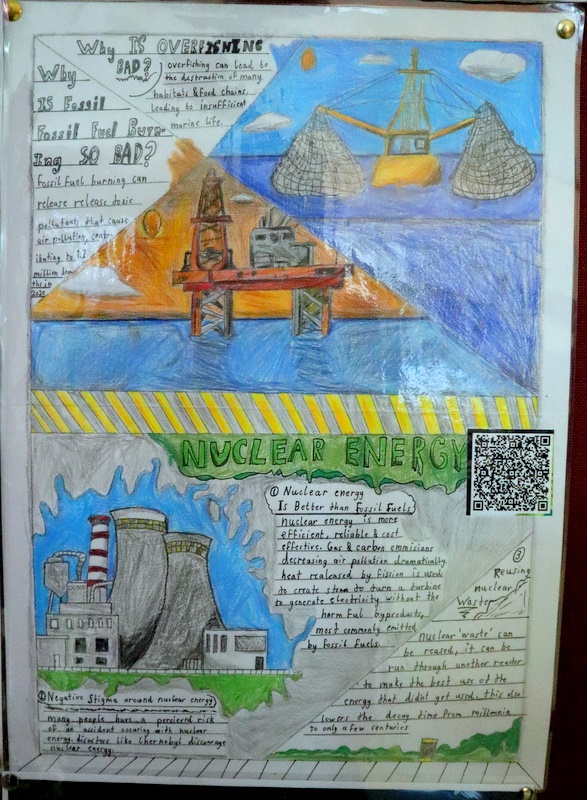 Why IS OVERFISHING
BAD?
overfishing can lead to
the destrustion of many
habitats & food chains.
leading to insufficient
marine life.
Why
IS Fossil
Fossil Fuel Burn-
Ing SO BAD?
Fossil fuel burning can
release release toxic
pollutants that cause
air pollution, contr-
ibuting to 1.2
million
ths in
NUCLEAR ENERGY
① Nuclear energy
Is Better than Fossil Fuels
nuclear energy is more
efficient, reliable & cost
effective. Gas & carbon emmisions
decreasing air pollution dramatically.
heat realeased by fission is used
to create steam to turn a turbine
to generate electricity without the
harmful byproducts,
most commonly emitted
by fossil fuels.
② Negative Stigma around nuclear energy
many people have a persieved risk
of an accident occuring with nuclear
energy. disasters like Chernobyl discourage
nuclear energy.
③
Reusing
nuclear
Waste
'Nuclear waste' can
be reused, it can be
run through another reacter
to make the best use of the
energy that didnt get used. this also
lowers the decay time from millennia
to only a few centuries